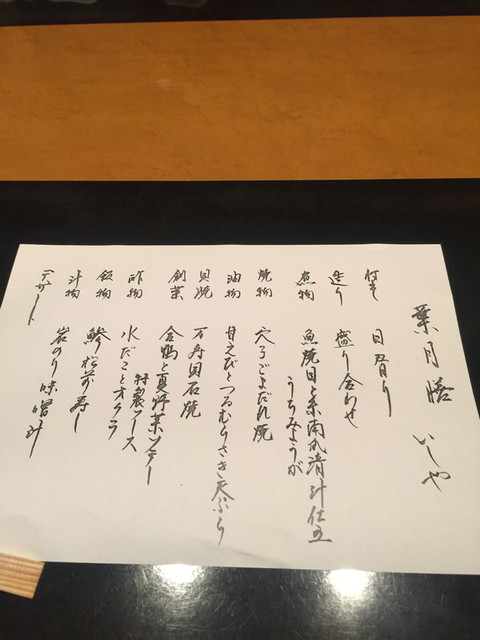 葉月膳 いしや
付き 日替り
造り 盛り合わせ
煮物 魚焼目と糸南瓜清汁仕立
うちみょうが
焼物 穴子ごまだれ焼
油物 甘えびとつるむらさき天ぷら
貝焼 万寿貝石焼
創菜 合鴨と夏野菜ソテー
特製ソース
酢物 水だことオクラ
飯物 鯵松前寿し
汁物 岩のり味噌汁
デザート